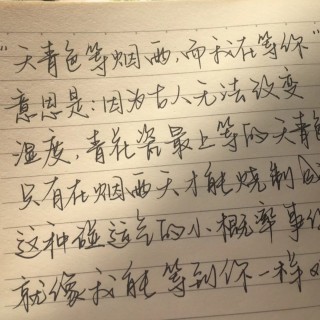 “天青色等烟雨，而我在等你”
意思是：因为古人无法改变
湿度，青花瓷最上等的天青色
只有在烟雨天才能烧制
这种碰运气的小概率事件
就像我能等到你一样